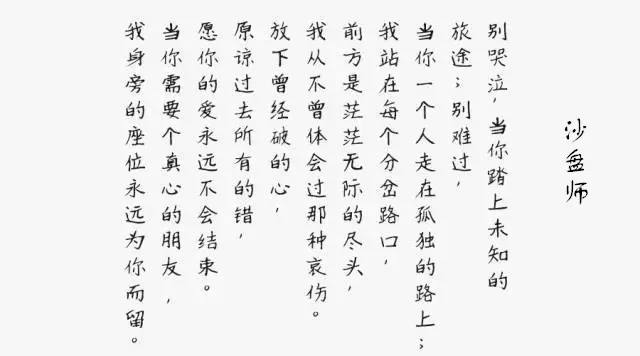 沙盘师
别哭泣,当你踏上未知的
旅途;别难过,
当你一个人走在孤独的路上;
我站在每个分岔路口,
前方是茫茫无际的尽头,
我从不曾体会过那种哀伤。
放下曾经破的心,
原谅过去所有的错,
愿你的爱永远不会结束。
当你需要个真心的朋友,
我身旁的座位永远为你而留。